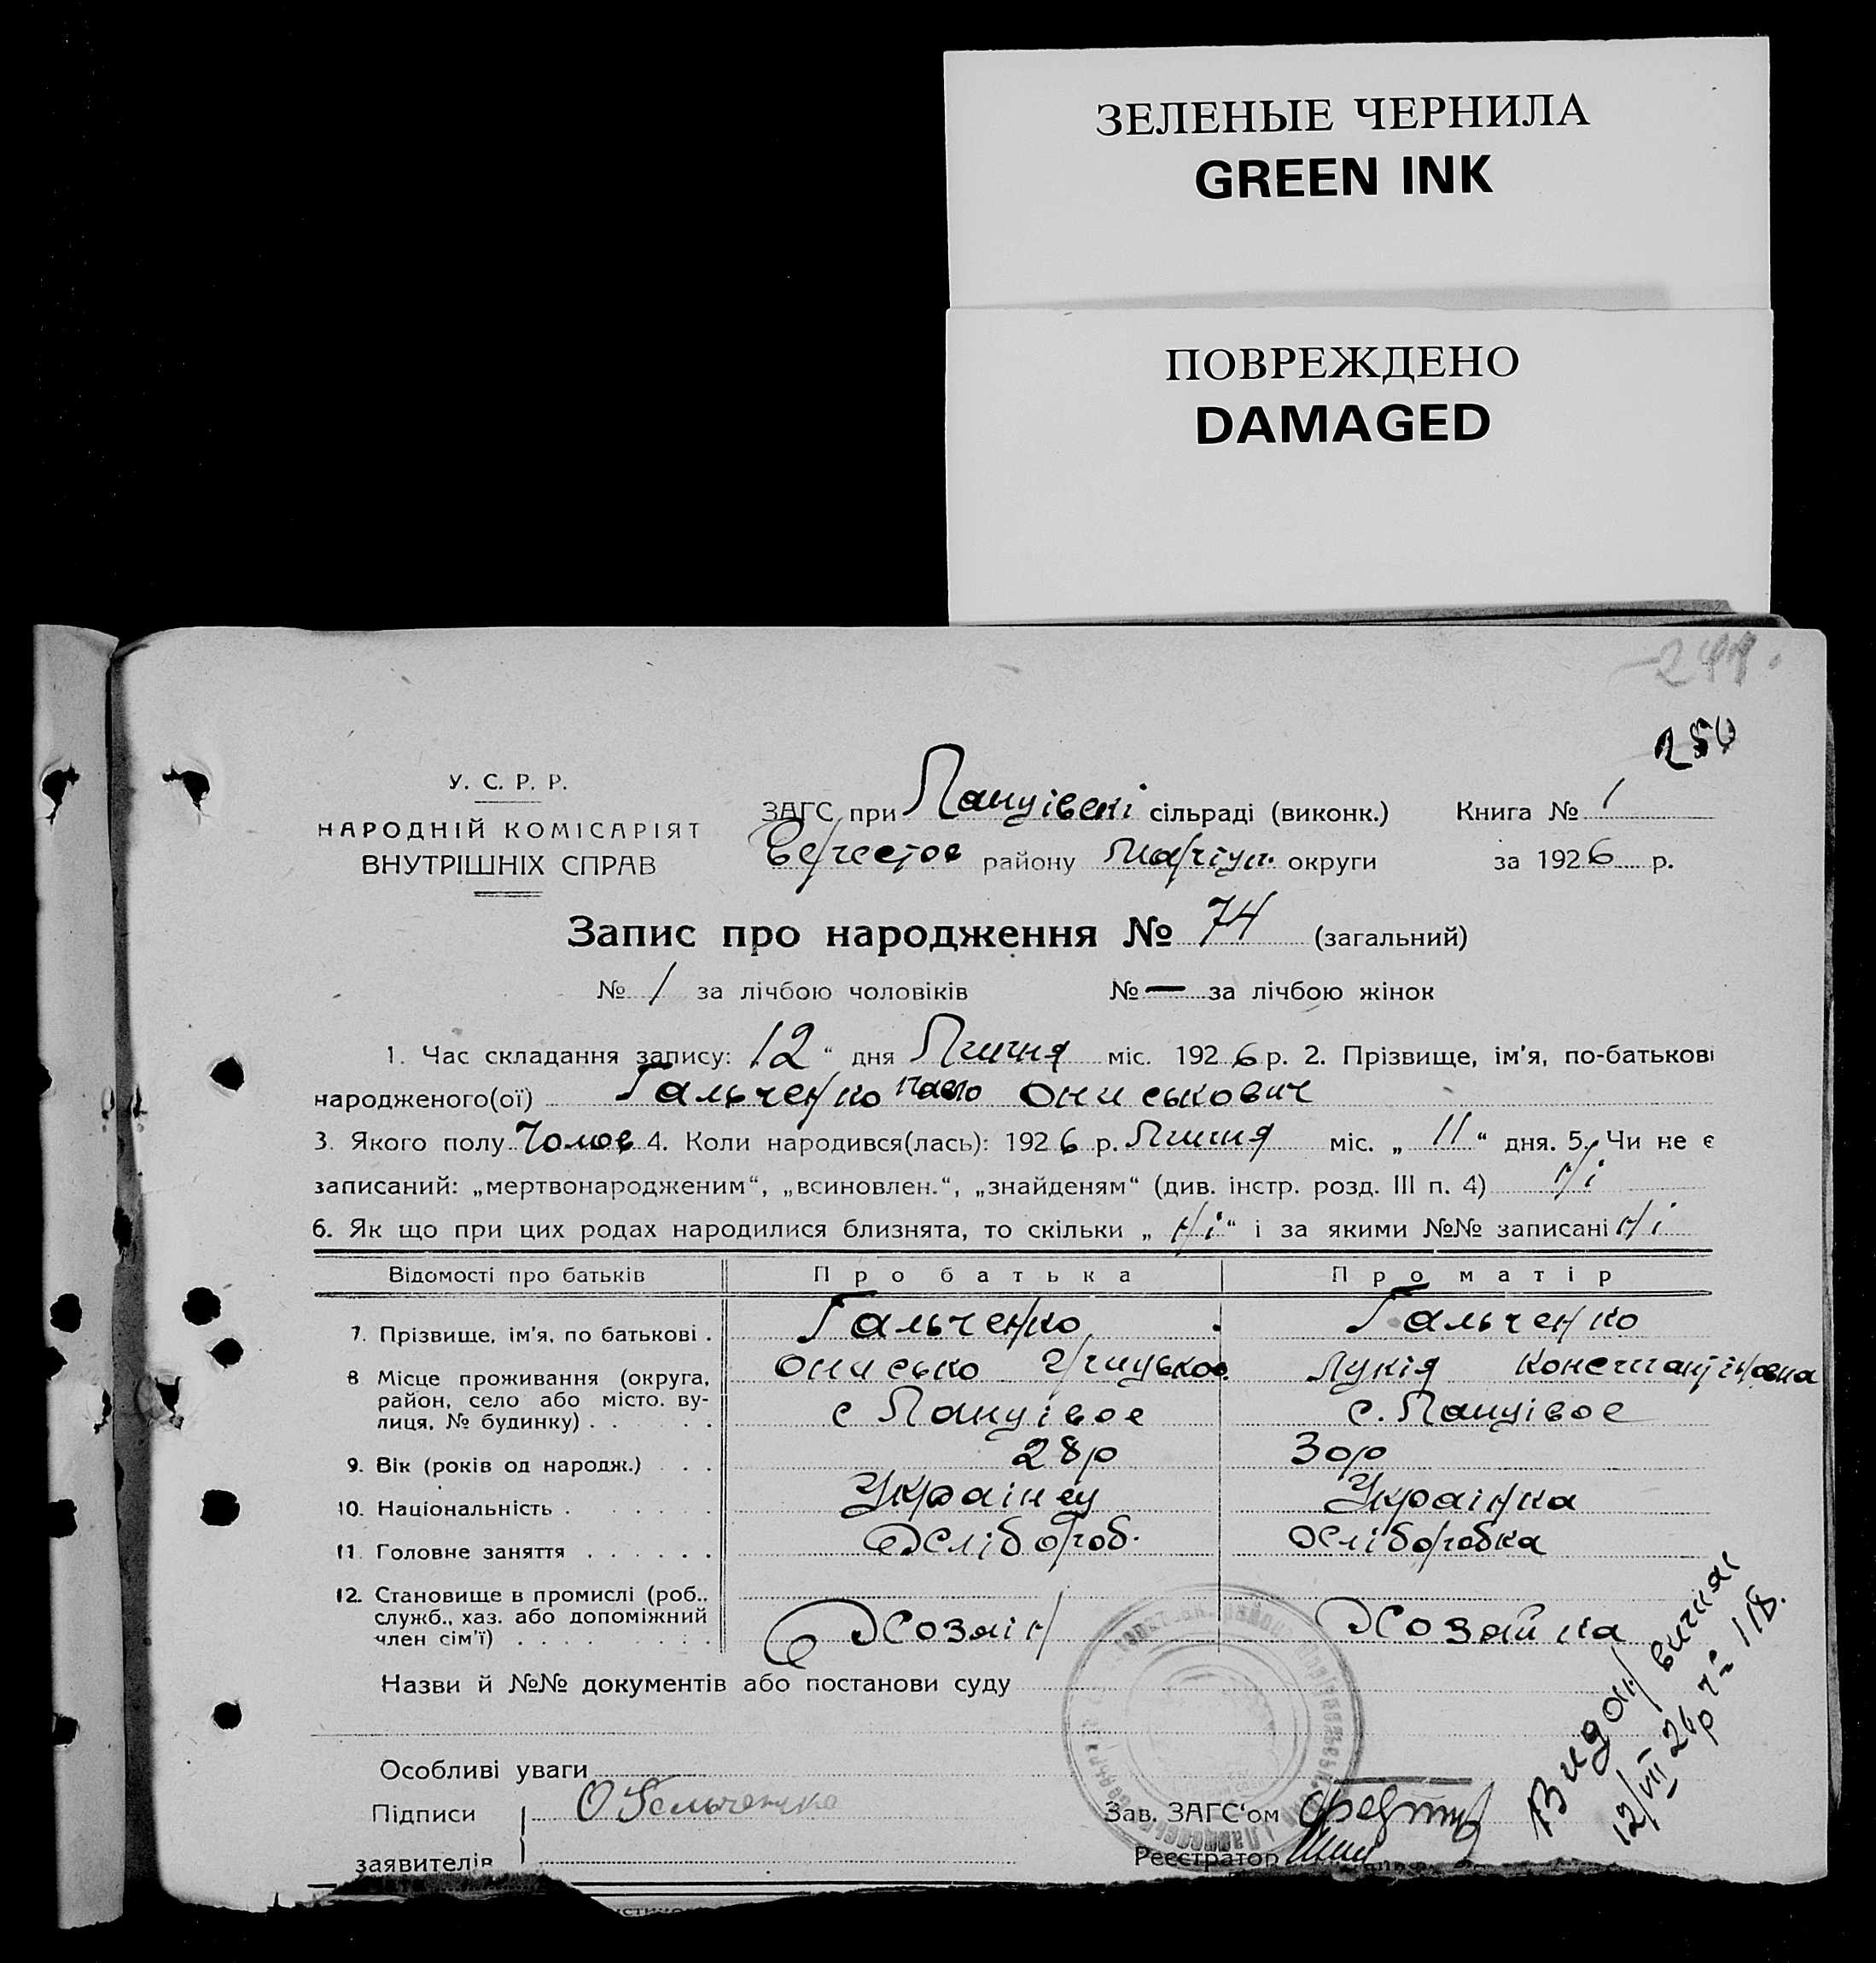 ЗЕЛЕНЫЕ ЧЕРНИЛА
GREEN INK
ПОВРЕЖДЕНО
DAMAGED
250
У. С. Р. Р.
НАРОДНІЙ КОМІСАРІЯТ
ВНУТРІШНІХ СПРАВ
ЗАГС при Ланцівскі сільраді (виконк.) Книга № 1
району Маріуп. округи за 1926 р.
Запис про народження № 74 (загальний)
№ 1 за лічбою чоловіків № — за лічбою жінок
1. Час складання запису: 12 " дня Липня міс. 1926 р. 2. Прізвище, ім'я, по-батькові
народженого(ої) Гальченко Павло Ониськович
3. Якого полу Чолов 4. Коли народився(лась): 1926 р. Липня міс. „ 11 " дня. 5. Чи не є
записаний: „мертвонародженим", „всиновлен.", „знайденям" (див. інстр. розд. III п. 4) Ні
6. Як що при цих родах народилися близнята, то скільки „ Ні " і за якими №№ записані Ні
Відомості про батьків Про батька Про матір
7. Прізвище, ім'я, по батькові . Гальченко Гальченко
Онисько Грицьков Лукія Константіновна
8 Місце проживання (округа,
район, село або місто. ву-
лиця, № будинку) . . . . с Ланцівое с. Ланцівое
9. Вік (років од народж.) . . 28р 30р
10. Національність . . . . . Украінец Украінка
11 Головне заняття . . . . . . Хлібороб. Хліборобка
12. Становище в промислі (роб..
служб., хаз. або допоміжний
член сім'ї) . . . . . . . . Хозаін Хозайка
Назви й №№ документів або постанови суду
Особливі уваги
Підписи О Гальченко Зав. ЗАГС'ом
заявителів Реєстратор
Видан витяг
12/VII 26 р № 118.